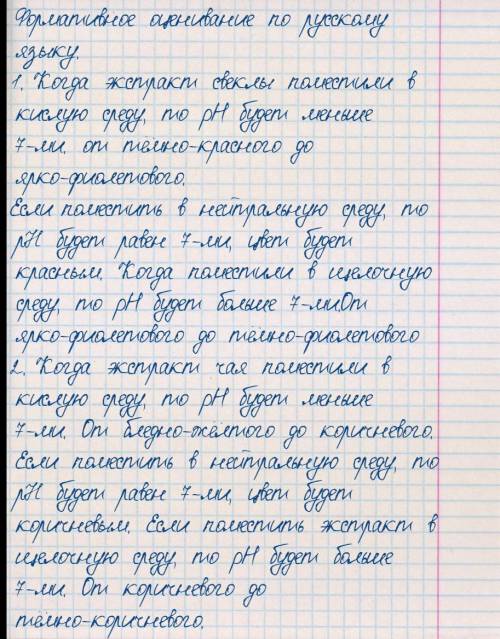 Формативное оценивание по русскому
языку.
1. Когда экстракт свеклы поместили в
кислую среду, то pH будет меньше
7-ми. от тёмно-красного до
ярко-фиолетового.
Если поместить в нейтральную среду, то
pH будет равен 7-ми, цвет будет
красным. Когда поместили в щелочную
среду, то pH будет больше 7-ми.От
ярко-фиолетового до тёмно-фиолетового
2. Когда экстракт чая поместили в
кислую среду, то pH будет меньше
7-ми. От бледно-жёлтого до коричневого.
Если поместить в нейтральную среду, то
pH будет равен 7-ми, цвет будет
коричневым. Если поместить экстракт в
щелочную среду, то pH будет больше
7-ми. От коричневого до
тёмно-коричневого.